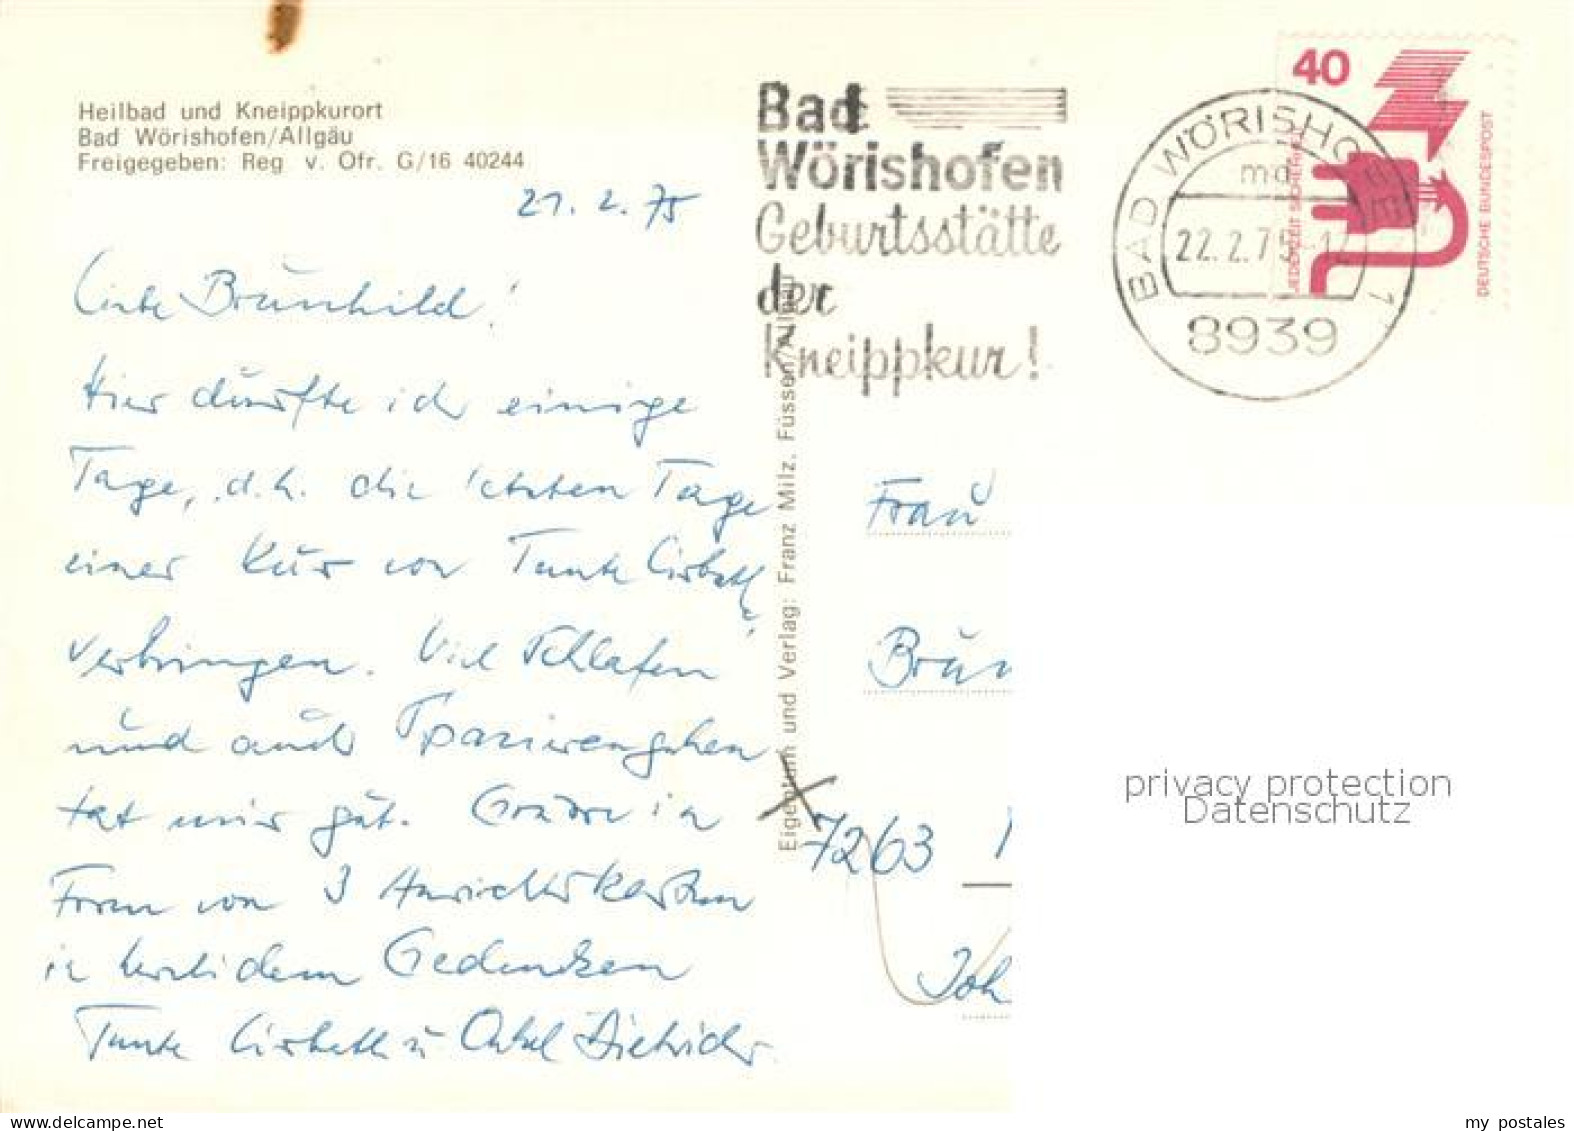 Heilbad und Kneippkurort
Bad Wörishofen/Allgäu
Freigegeben: Reg v. Ofr. G/16 40244
21. 2. 75
Liebe Brünhild!
Hier dürfte ich einige
Tage, d.h. die letzten Tage
einer Kur von Tante Lisbeth
verbringen. Viel Schlafen
und auch Spazierengehen
tat mir gut. Grüsse in
Form von 3 Ansichtskarten
in herzlichem Gedenken
Tante Lisbeth u. Onkel Dietrich
Eigentum und Verlag: Franz Milz, Füssen/Allgäu
Bad
Wörishofen
Geburtsstätte
der
Kneippkur!
BAD WÖRISHOFEN 1
ma
22.2.75-12
8939
40
JEDERZEIT SICHERHEIT
DEUTSCHE BUNDESPOST
Frau
Brün
7263
Joh
privacy protection
Datenschutz
my postales